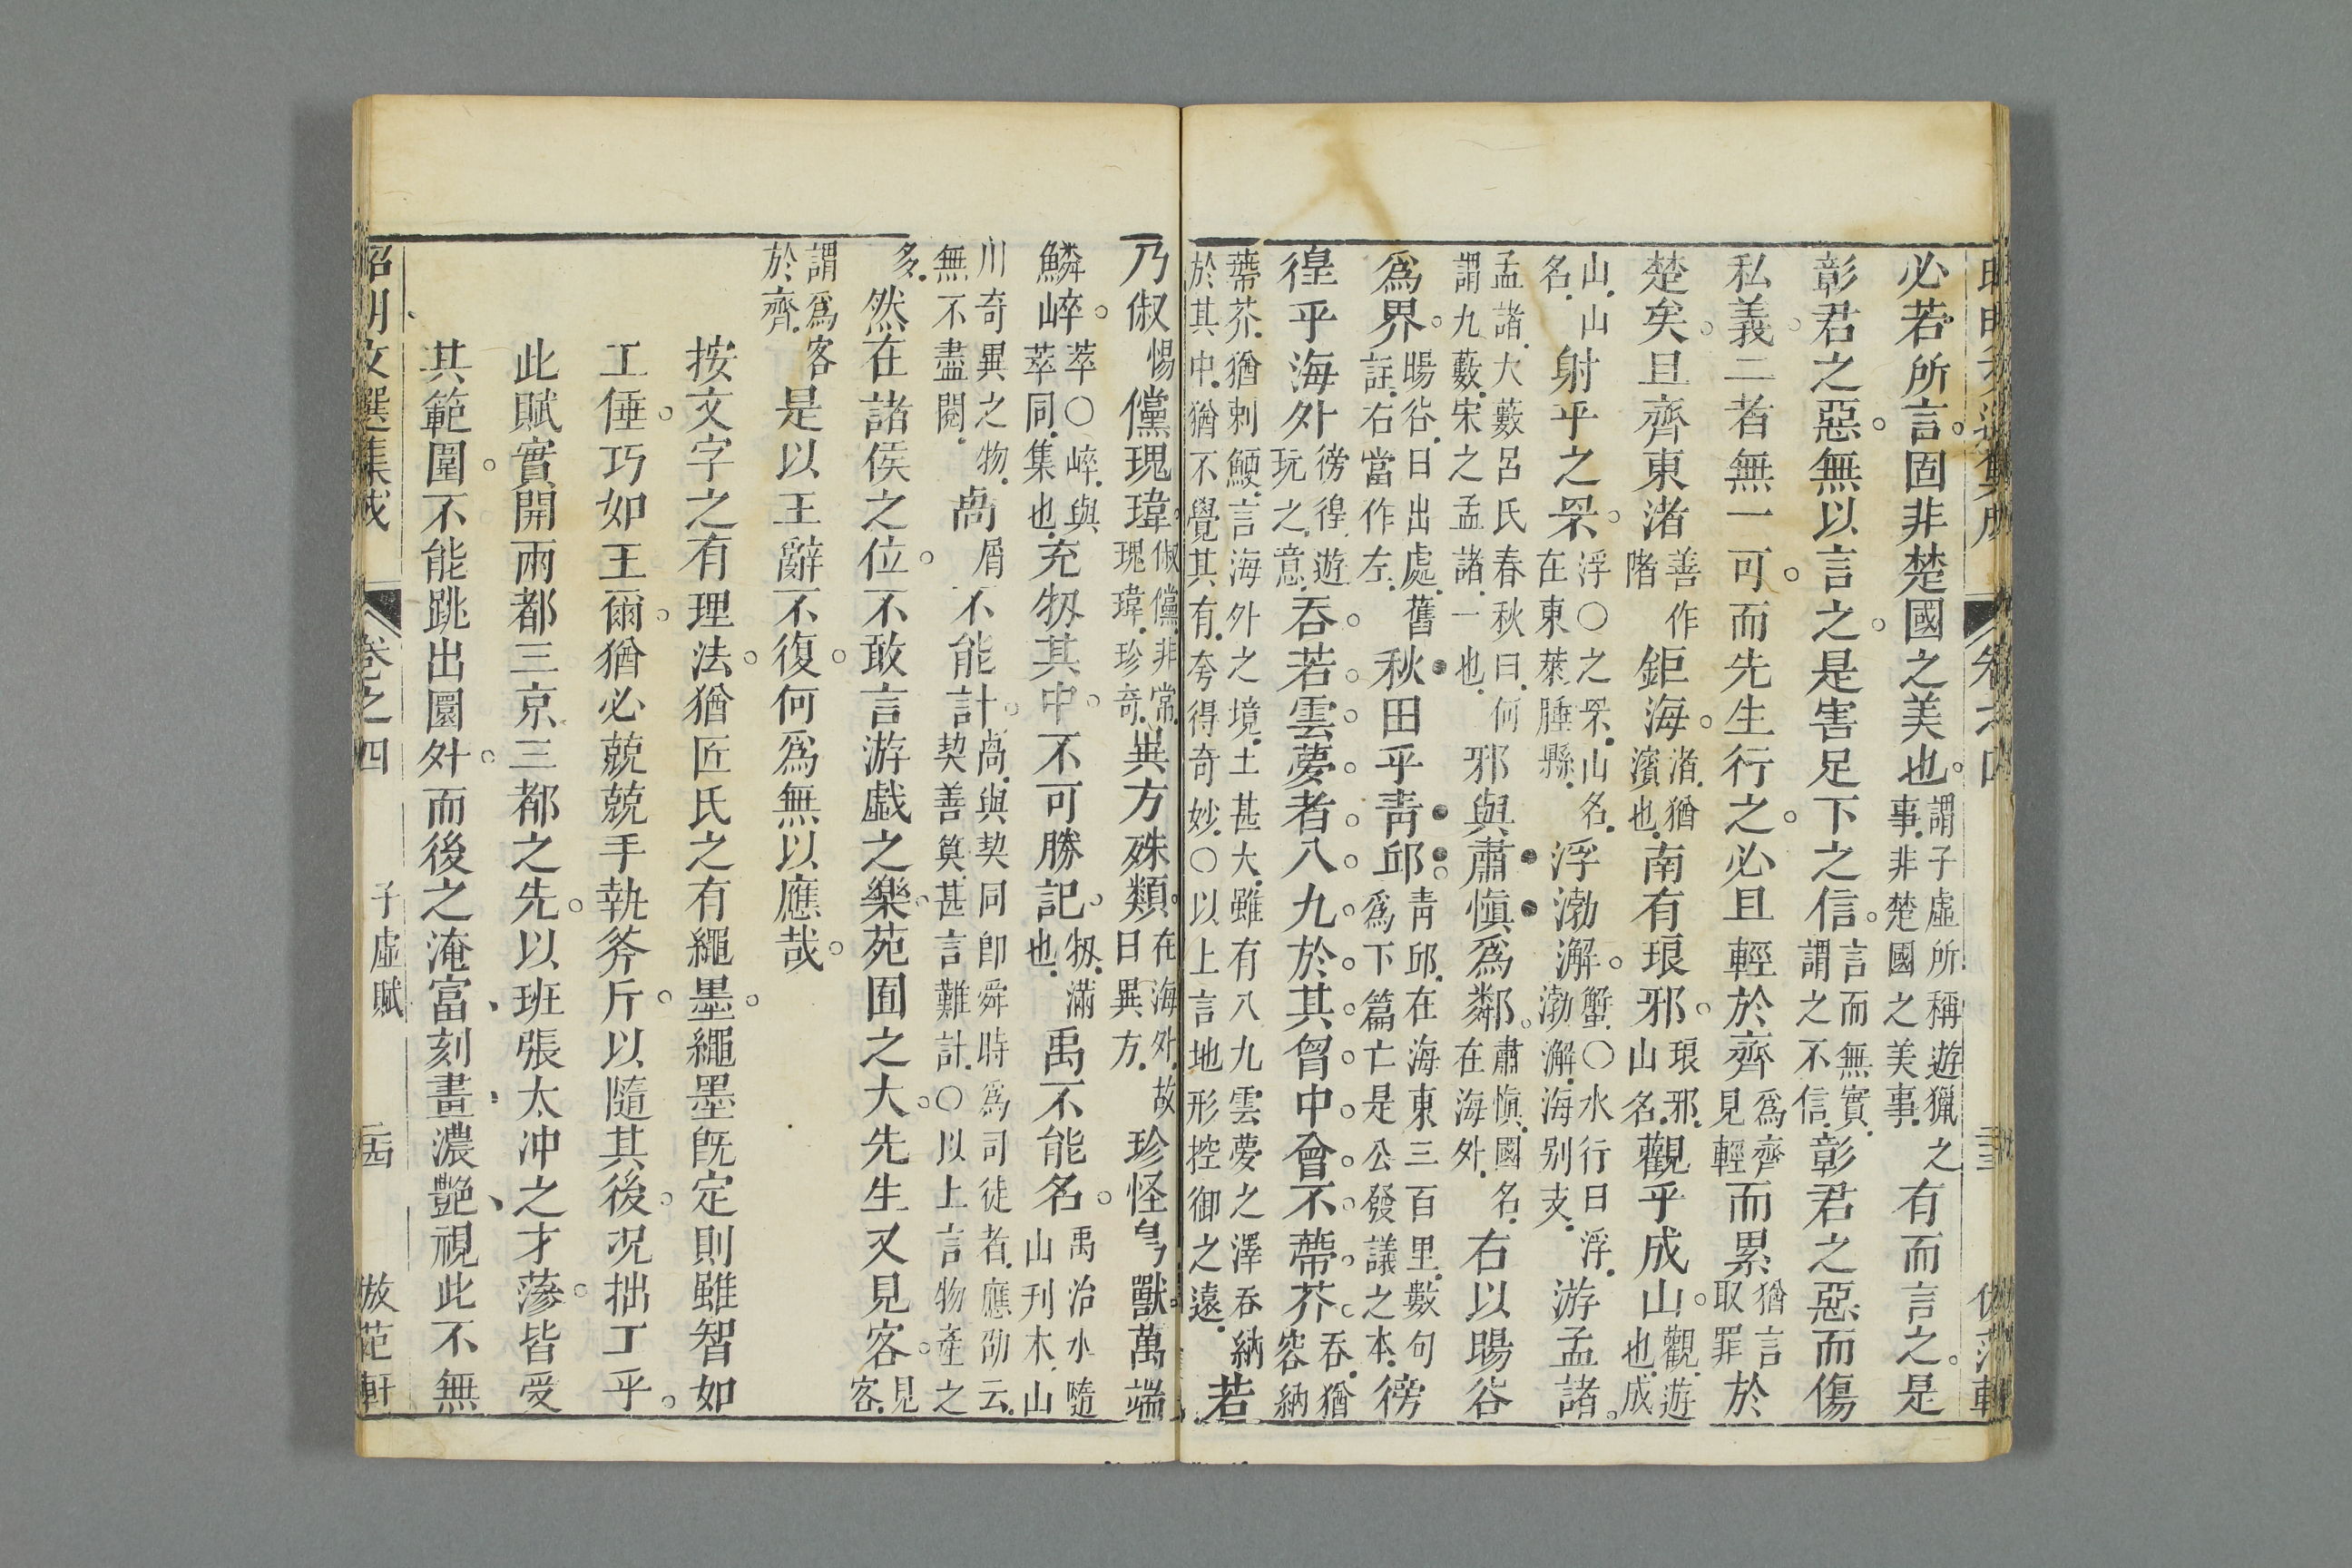 必若所言。固非楚國之美也。謂子虛所稱遊獵之事。非楚國之美事。有而言之。是
彰君之惡。無以言之。是害足下之信。言而無實。謂之不信。彰君之惡而傷
私義。二者無一可。而先生行之。必且輕於齊爲齊見輕而累猶言取罪於
楚矣。且齊東渚善作階鉅海。渚。猶濱也。南有琅邪。琅邪。山名。觀乎成山。觀。遊也。成
山。山名。射乎之罘。浮○之罘。山名。在東萊腄縣。浮渤澥。蟹○水行曰浮。渤澥。海別支。游孟諸。
孟諸。大藪。呂氏春秋曰。何謂九藪。宋之孟諸。一也。邪與肅愼爲鄰。肅愼。國名。在海外。右以暘谷
爲界。暘谷。日出處。舊註。右當作左。秋田乎靑邱。靑邱。在海東三百里。數句爲下篇亡是公發議之本。徬
徨乎海外徬徨。遊玩之意。吞若雲夢者八九於其胷中。曾不蔕芥。吞。猶容納
蔕芥。猶刺鯁。言海外之境。土甚大。雖有八九雲夢之澤吞納於其中。猶不覺其有。夸得奇妙。○以上言地形控御之遠。若
乃俶惕儻瑰瑋。俶儻。非常。瑰瑋。珍奇。異方殊類。在海外。故曰異方。珍怪鳥獸。萬端
鱗崪。萃○崪。與萃同。集也。充牣其中。不可勝記。牣。滿也。禹不能名。禹治水隨山刋木。山
川奇異之物。無不盡閱。卨屑不能計。卨。與契同。卽舜時爲司徒者。應劭云。契善筭。甚言難計。○以上言物產之
多。然在諸侯之位。不敢言游戲之樂。苑囿之大。先生又見客。見客。
謂爲客於齊。是以王辭不復。何爲無以應哉。
按文字之有理法。猶匠氏之有繩墨。繩墨旣定則雖智如
工倕。巧如王爾。猶必兢兢手執斧斤。以隨其後。况拙工乎。
此賦實開兩都三京三都之先。以班張太冲之才藻。皆受
其範圍。不能跳出圜外。而後之淹富刻畫濃艷視此不無
昭明文選集成 卷之四 子虛賦 倣范軒